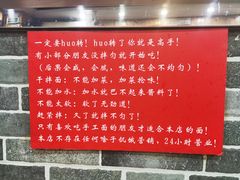 一定要huo转！huo转了你就是高手！
有小部分朋友没拌匀就开始吃！
（后果会咸，会腻，味道还会不均匀）！
干拌面：不能加菜，加菜怆味！
不能加水：加水就巴不起来酱料了！
不能太软：软了无劲道！
赶紧拌：久了就拌不匀了！
只有喜欢吃手工面的朋友才适合本店的面！
本店不存在任何噱子饥饿营销，24小时营业！